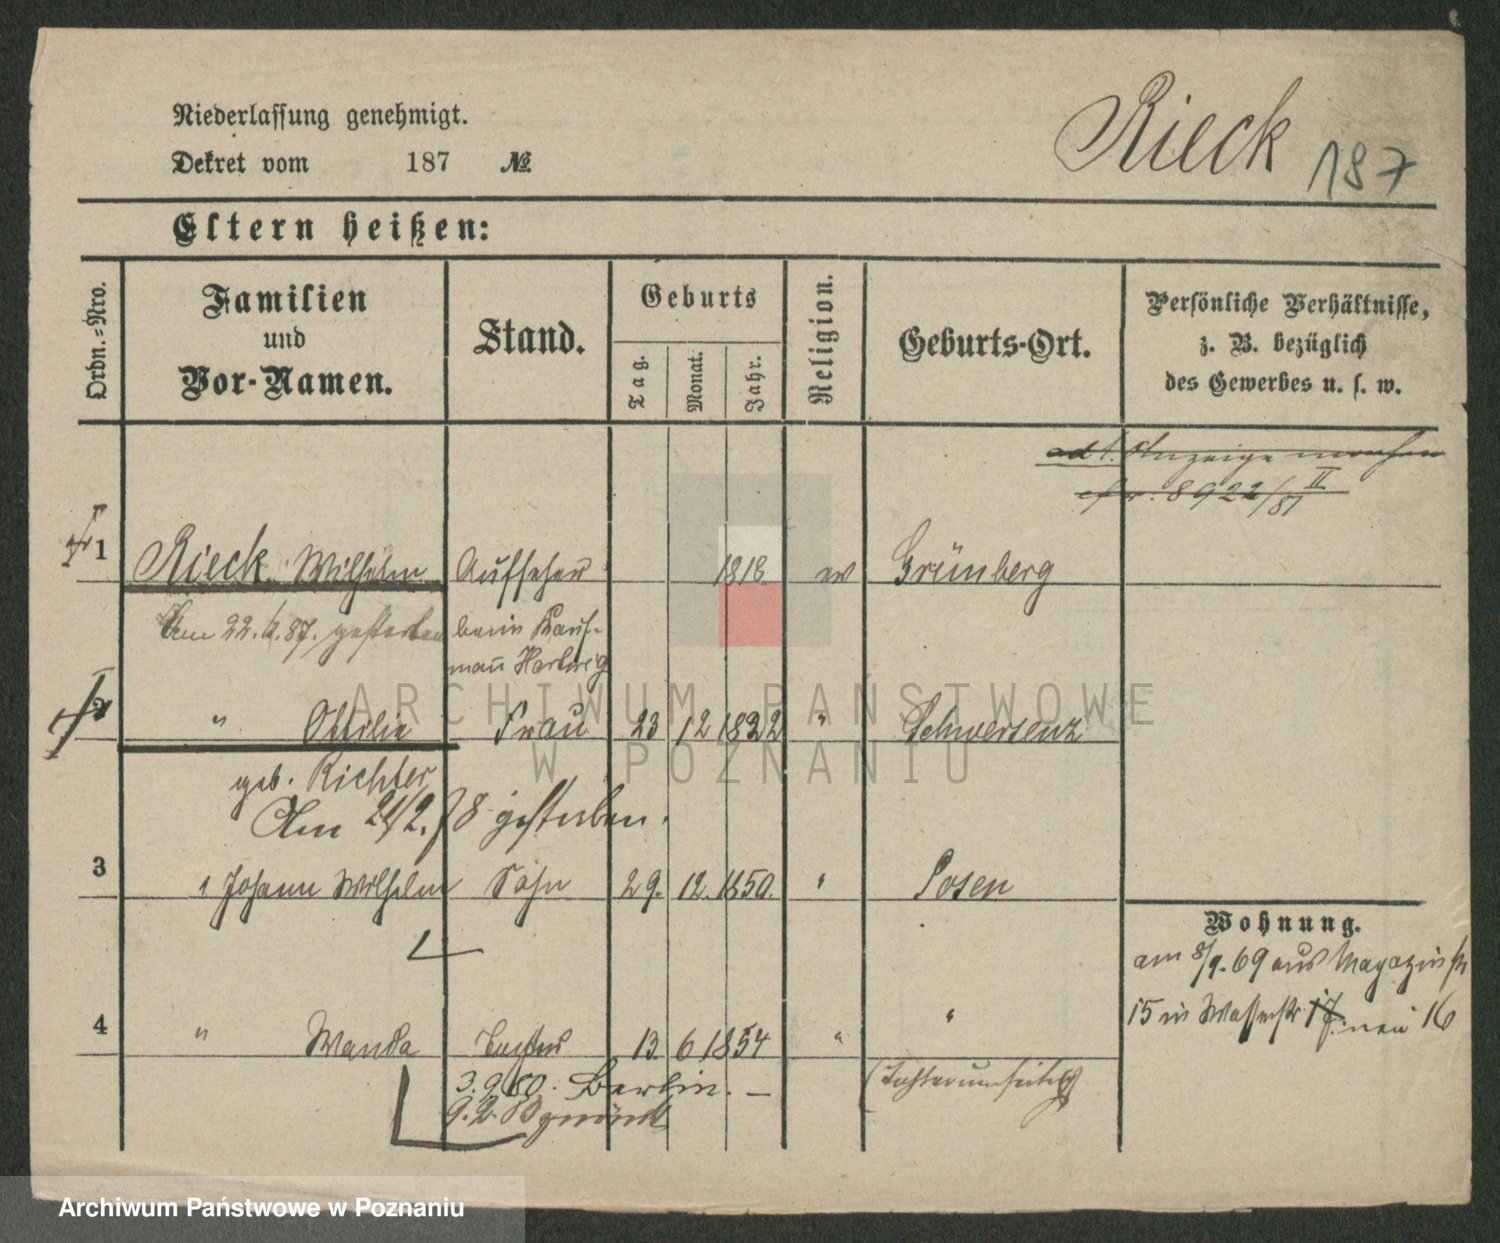 Niederlassung genehmigt.
Rieck 187
Dekret vom 187 №
Eltern heißen:
Ordn.=Nro.
Familien
und
Vor-Namen.
Stand.
Geburts
Tag.
Monat.
Jahr.
Religion.
Geburts-Ort.
Persönliche Verhältnisse,
z. B. bezüglich
des Gewerbes u. s. w.
ad 1. Anzeige
cfr. 8922/81 II
1 Rieck Wilhelm Aufseher 1818 ev Grünberg
Am 22. 87. gestorben beim Kauf-
mann Hartwig
2 " Ottilie Frau 23 12 1822 " Schwersenz
geb. Richter
Am 24/2. 78 gestorben.
3 Johann Wilhelm Sohn 29. 12. 1850. " Posen
4 " Wanda Tochter 13 6 1854 " "
3. 9. 80. Berlin. —
9. 2.
(Tochter umseitig)
Wohnung.
am 8/9. 69 aus Magazinstr
15 in Wasserstr 17. neu 16
ARCHIWUM PAŃSTWOWE
W POZNANIU
Archiwum Państwowe w Poznaniu